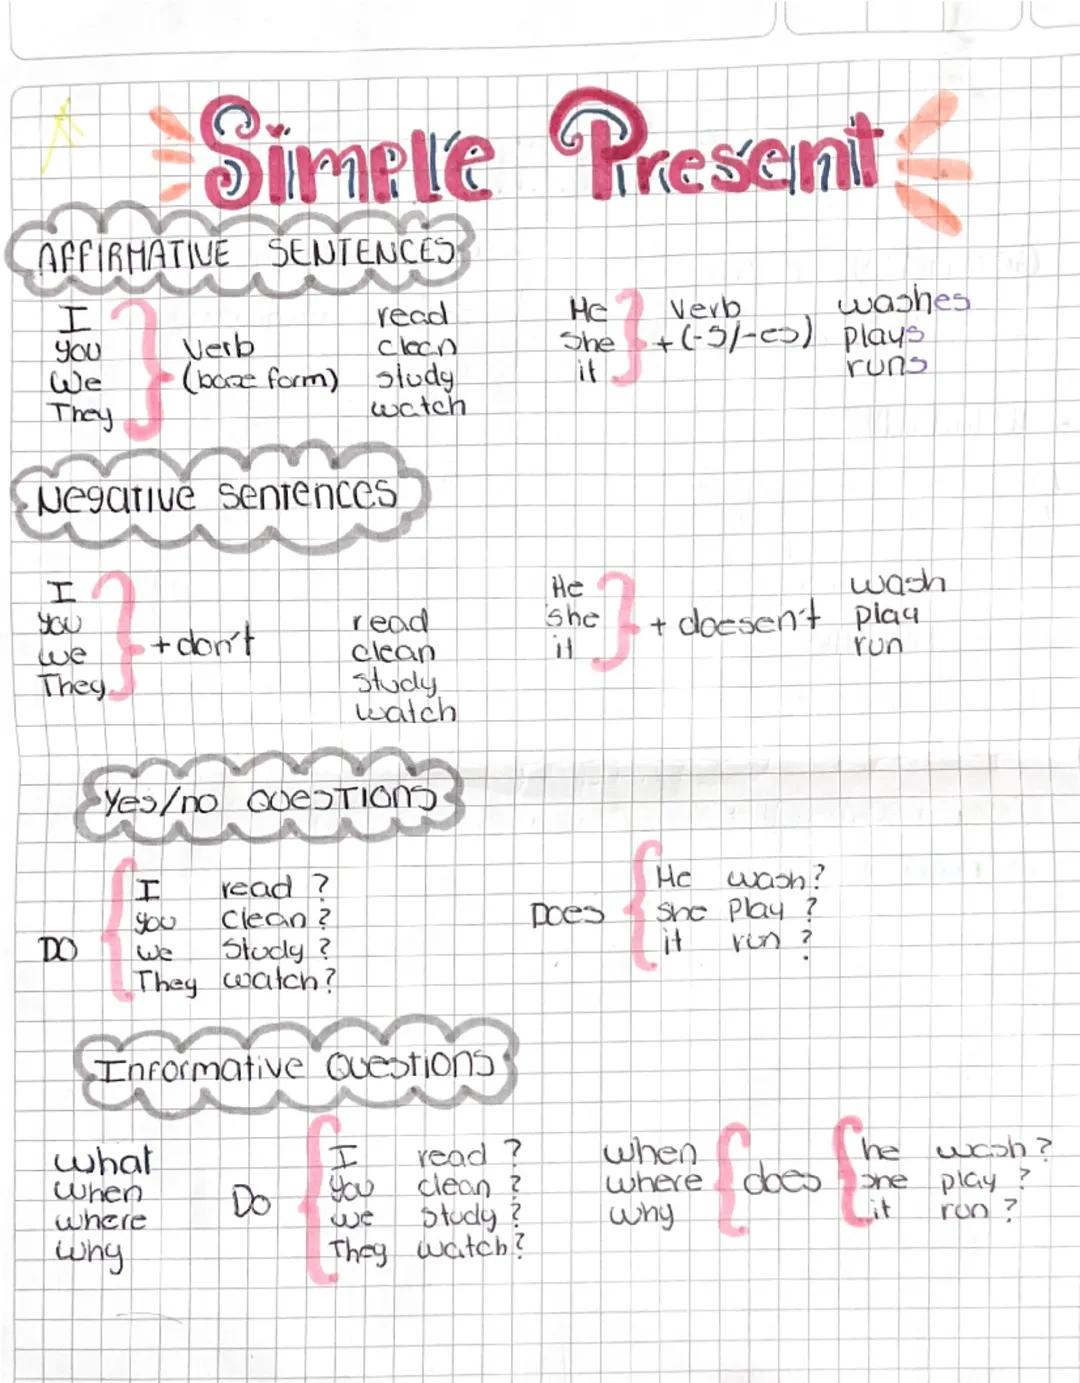 Simple Present
AFFIRMATIVE SENTENCES
I
you
We
They
Verb
(base form)
read
clean
study
watch
He
She
it
Verb
+(-s/-es)
washes
plays
runs
Negative sentences
I
you
we
They
+ don't
read
clean
study
watch
He
she
it
+ doesen't
wash
play
run
Yes/no Questions
DO
I read ?
you clean ?
we study ?
They watch?
Does
He wash?
she play ?
it run ?
Informative Questions
what
when
where
why
Do
I read ?
you clean ?
we study ?
They watch?
when
where
why
does
he wash?
she play ?
it run ?